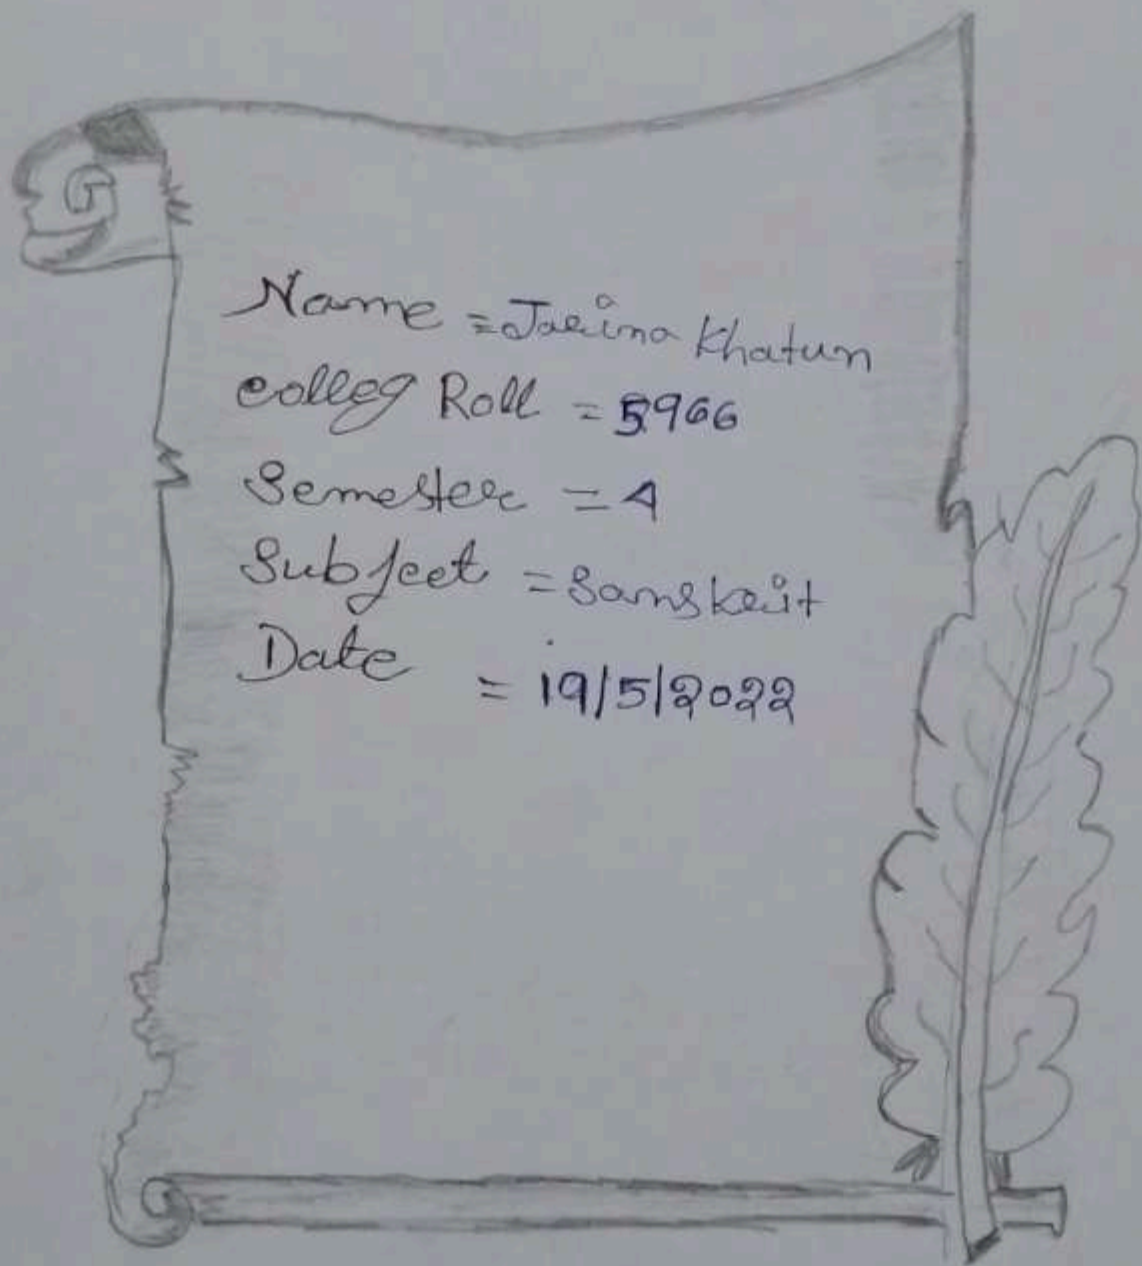 Name = Jarina Khatun
colleg Roll = 5966
Semester = 4
Subject = Sanskrit
Date = 19/5/2022